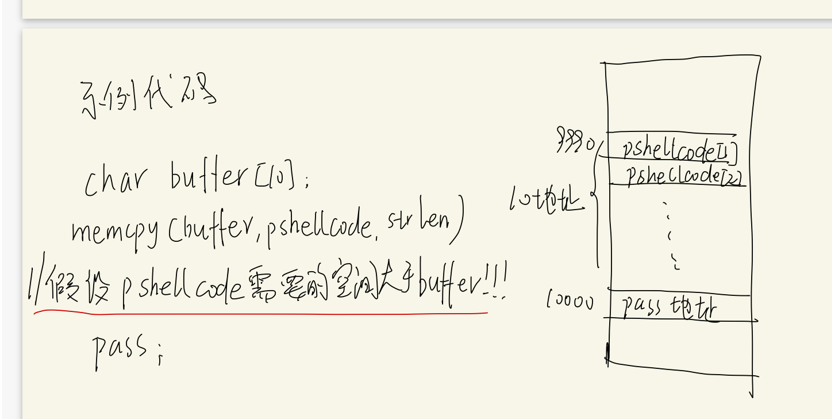 示例代码
char buffer[10];
memcpy(buffer,pshellcode,strlen)
//假设pshellcode需要的空间大于buffer!!!
pass;
9990
pshellcode[1]
pshellcode[2]
10地址
10000
pass地址